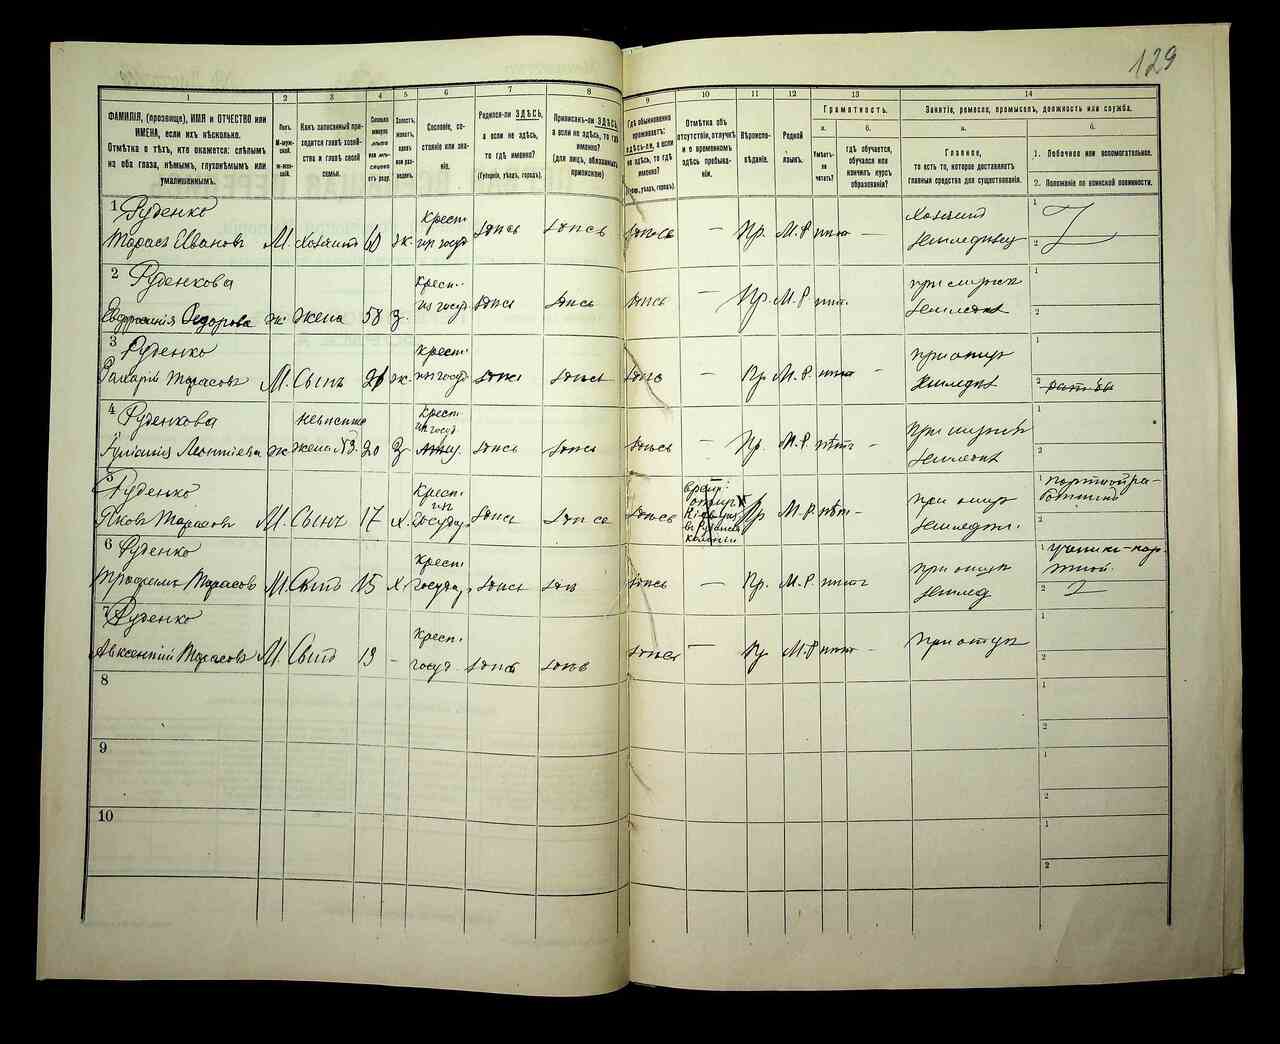 129
1 2 3 4 5 6 7 8 9 10 11 12 13 14
ФАМИЛІЯ, (прозвище), ИМЯ и ОТЧЕСТВО или
ИМЕНА, если ихъ нѣсколько.
Отмѣтка о тѣхъ, кто окажется: слѣпымъ
на оба глаза, нѣмымъ, глухонѣмымъ или
умалишеннымъ.
Полъ.
М-мужской.
Ж-женскій.
Какъ записанный при-
ходится главѣ хозяй-
ства и главѣ своей
семьи.
Сколько
минуло
лѣтъ
или мѣ-
сяцевъ
отъ роду.
Холостъ,
женатъ,
вдовъ
или раз-
веденъ.
Сословіе, со-
стояніе или зва-
ніе.
Родился-ли ЗДѢСЬ,
а если не здѣсь,
то гдѣ именно?
(Губернія, уѣздъ, городъ).
Приписанъ-ли ЗДѢСЬ,
а если не здѣсь, то гдѣ
именно?
(для лицъ, обязанныхъ
припискою)
Гдѣ обыкновенно
проживаетъ:
здѣсь-ли, а если
не здѣсь, то гдѣ
именно?
(Губер., уѣздъ, городъ).
Отмѣтка объ
отсутствіи, отлучкѣ
и о временномъ
здѣсь пребыва-
ніи.
Вѣроиспо-
вѣданіе.
Родной
языкъ.
Грамотность.
а.
Умѣетъ-
ли
читать?
б.
Гдѣ обучается,
обучался или
кончилъ курсъ
образованія?
Занятіе, ремесло, промыселъ, должность или служба.
а.
Главное,
то есть то, которое доставляетъ
главныя средства для существованія.
б.
1. Побочное или вспомогательное.
2. Положеніе по воинской повинности.
1 Руденко
Тарасъ Ивановъ М. Хозяинъ 60 ж. Крест. изъ госуд. здѣсь здѣсь здѣсь — Пр. М.Р. нѣтъ — Хозяинъ земледѣлец
2 Руденкова
Евфросинія Федорова ж жена 58 з. Крест. из госуд. здѣсь здѣсь здѣсь — Пр. М.Р. нѣт.
3 Руденко
Захарій Тарасовъ М. Сынъ ж. Крест. из госуд здѣсь здѣсь здѣсь — Пр М.Р. нѣтъ — при отцѣ
4 Руденкова
Іуліанія Леонтіева ж жена №3. 20 з Крест. из госуд. здѣсь здѣсь здѣсь — Пр. М.Р. нѣтъ — при мужѣ
5 Руденко
Яковъ Тарасовъ М. Сынъ 17 х. Крест. из Государ. здѣсь здѣсь здѣсь Пр М.Р. нѣт — при отцѣ
6 Руденко
Трофимъ Тарасовъ М. Сынъ 15 х. Крест. государ. здѣсь здѣс здѣсь — Пр. М.Р. нѣтъ при отцѣ землед ученикъ-пор-
тной.
7 Руденко
Авксентій Тарасовъ М. Сынъ 13 - Крест. госуд. здѣсь здѣсь здѣсь — Пр М.Р нѣтъ - При отцѣ
8
9
10